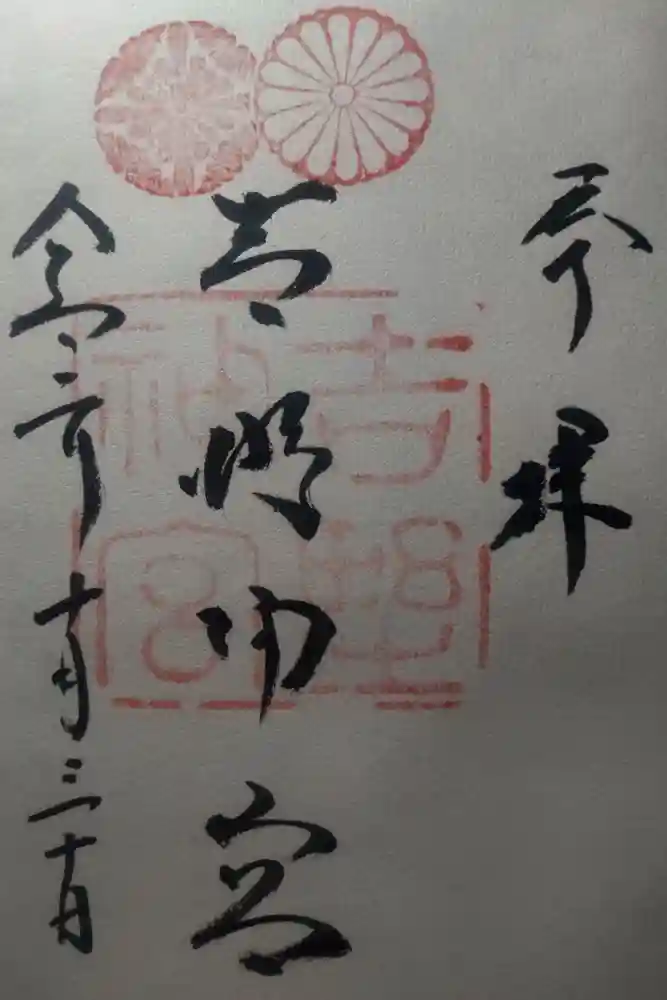 奉拝
吉野神宮
令二年十月三十日
吉野
神宮